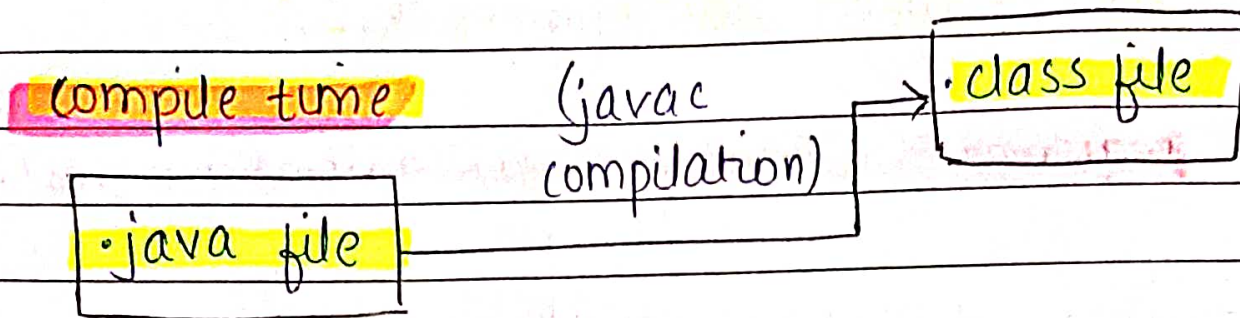 compile time
(javac
compilation)
.class file
.java file